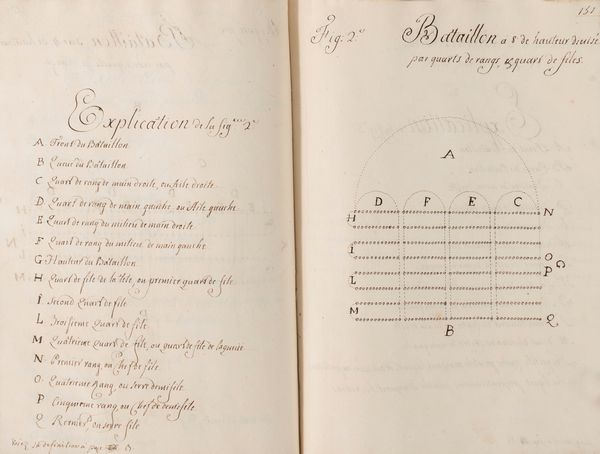 Explication de la fig.re 2.e
A Front du Bataillon
B Queue du Bataillon
C Quart de rang de main droite, ou Aile droite
D Quart de rang de main gauche, ou Aile gauche
E Quart de rang du milieu de main droite
F Quart de rang du milieu de main gauche
G Hauteur du Bataillon
H Quart de file de la tête, ou premier quart de file
I Second Quart de file
L Troisieme Quart de file
M Quatrieme Quart de file, ou quart de file de la queue
N Premier rang, ou Chef de file
O Quatrieme Rang, ou serre demi file
P Cinquieme rang, ou Chef de demi file
Q Dernier, ou serre file
151
Fig: 2.e
Bataillon a 8 de hauteur divisé
par quarts de rangs, & quart de files.
A
D F E C
H N
I O
G
L P
M Q
B